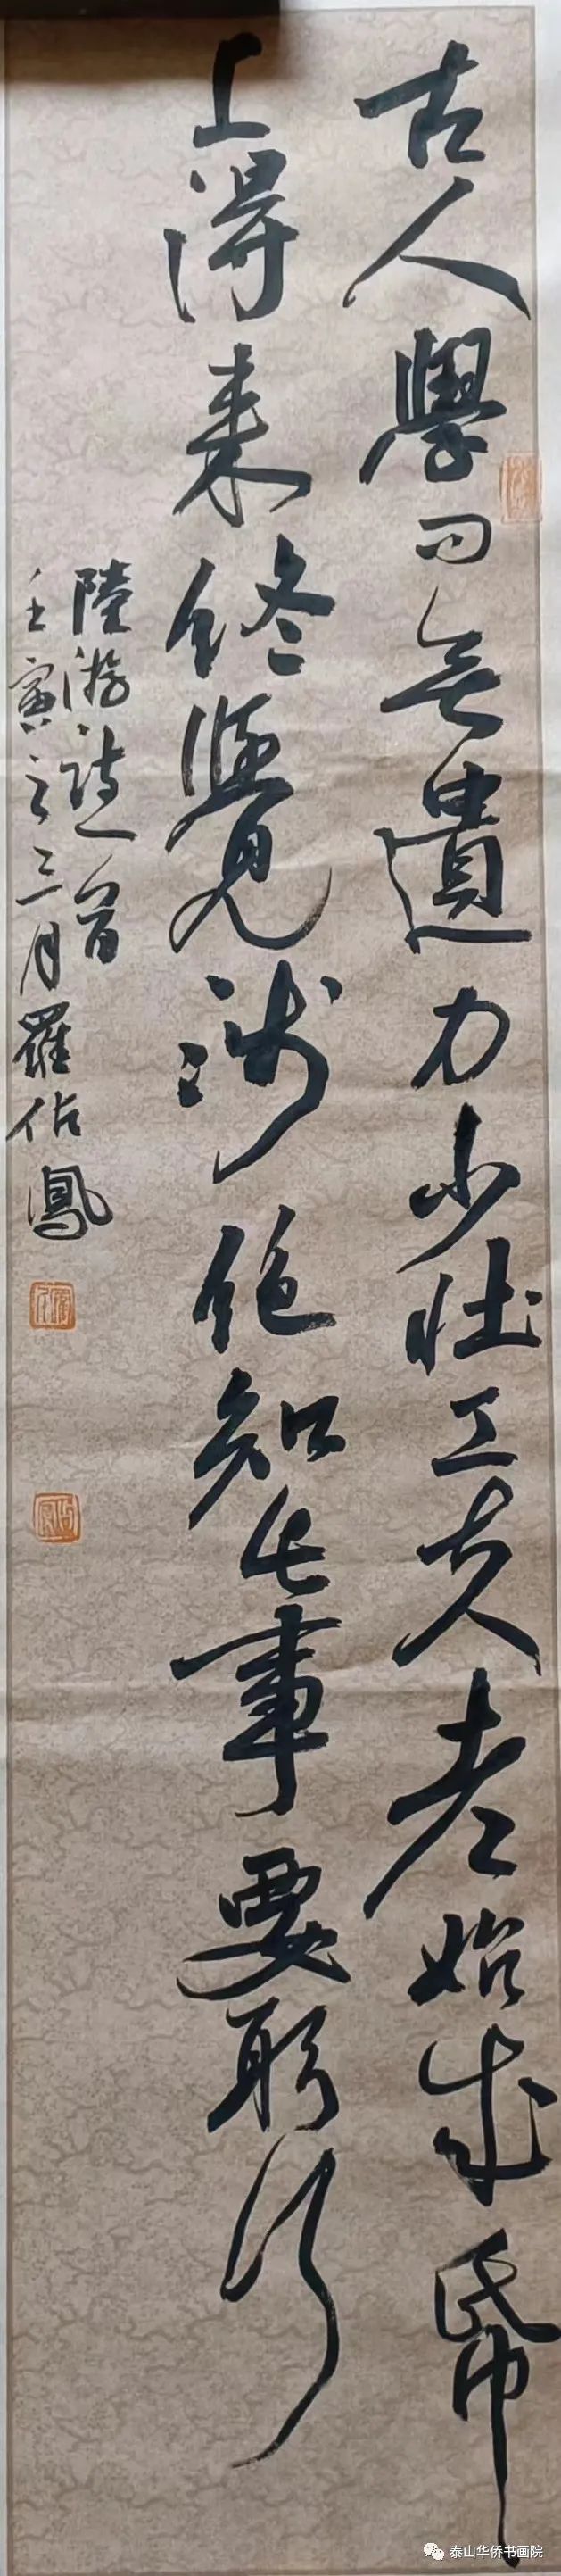 古人學问無遺力少壯工夫老始成帋
上得来终覺浅绝知此事要躬行
陸游詩一首
壬寅之三月羅佔鳳
泰山华侨书画院